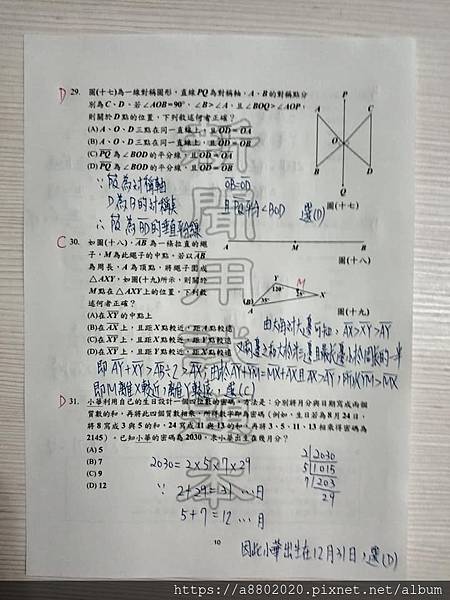 D 29. 圖(十七)為一線對稱圖形，直線PQ為對稱軸，A、B的對稱點分
別為C、D。若∠AOB=90°，∠B>∠A，且∠BOQ>∠AOP，
則關於D點的位置，下列敘述何者正確？
(A) A、O、D三點在同一直線上，且OD=OA
(B) A、O、D三點在同一直線上，且OD=OB
(C) PQ為∠BOD的平分線，且OD=OA
(D) PQ為∠BOD的平分線，且OD=OB
A
P
C
O
B
Q
D
圖(十七)
∵ PQ為對稱軸
D為B的對稱點
∴ PQ為BD的垂直平分線
OB=OD
且PQ平分∠BOD 選(D)
C 30. 如圖(十八)，AB為一條拉直的繩
子，M為此繩子的中點。若以AB
為周長，A為頂點，將繩子圍成
△AXY，如圖(十九)所示，則關於
M點在△AXY上的位置，下列敘
述何者正確？
(A) 在XY的中點上
(B) 在AY上，且距X點較近，距A點較遠
(C) 在XY上，且距X點較近，距Y點較遠
(D) 在XY上，且距Y點較近，距X點較遠
A M B
圖(十八)
Y
120°
M
X
(B)
A
35°
25°
圖(十九)
由大角對大邊可知，AX>XY>AY
又兩邊之和大於第三邊且最長邊小於周長的一半
即 AY+XY>AB÷2>AX，
即M離X較近，離Y較遠，選(C)
D 31. 小華利用自己的生日設計一個四位數的密碼，方法是：分別將月份與日期寫成兩個
質數的和，再將此四個質數相乘，所得數字即為密碼（例如，生日若為8月24日，
將8寫成3與5的和，24寫成11與13的和，再將3、5、11、13相乘得密碼為
2145）。已知小華的密碼為2030，求小華出生在幾月份？
(A) 5
(B) 7
(C) 9
(D) 12
2030=2×5×7×29
∵ 2+29=31 …日
5+7=12 …月
2 2030
5 1015
7 203
29
因此小華出生在12月31日，選(D)
新聞用讀本
10
https://a8802020.pixnet.net/album